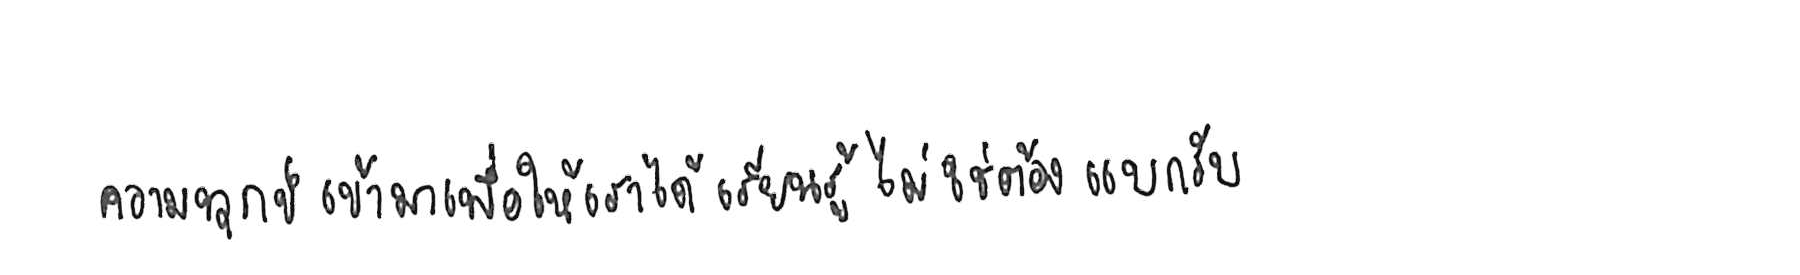 ความทุกข์ เข้ามาเพื่อให้เราได้ เรียนรู้ ไม่ ใช่ต้อง แบกรับ